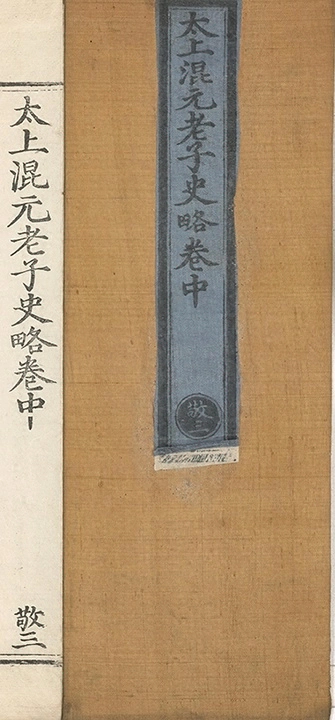 太上混元老子史略卷中
敬三
太上混元老子史略卷中
敬三